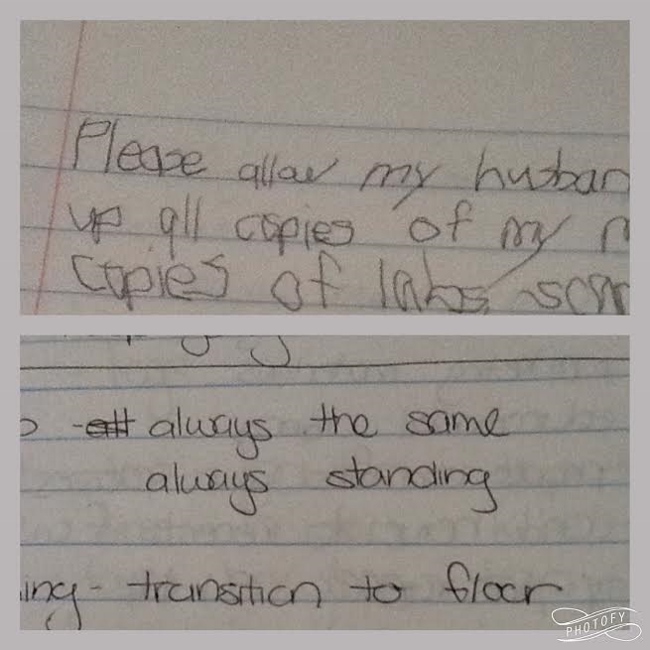 Please allow my husban
up all copies of my
copies of labs,
always the same
always standing
ing - transition to floor
PHOTOFY